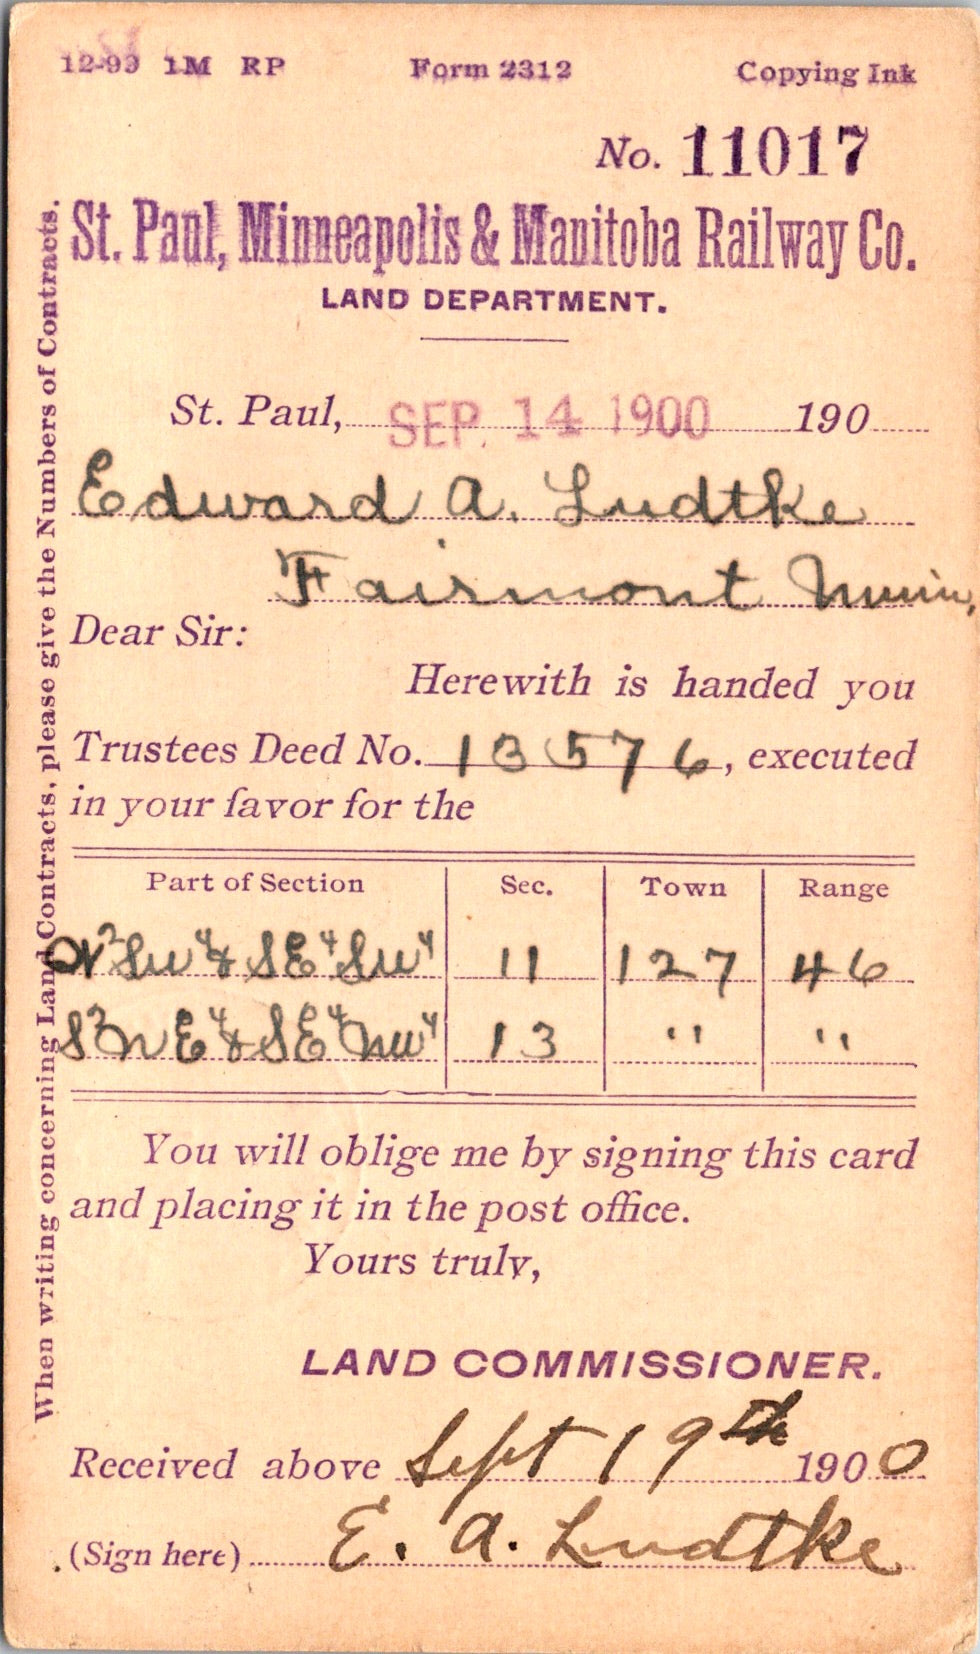 12-99 1M RP Form 2312 Copying Ink
No. 11017
St. Paul, Minneapolis & Manitoba Railway Co.
LAND DEPARTMENT.
St. Paul, SEP 14 1900 190
Edward A. Ludtke
Fairmont Minn.
Dear Sir:
Herewith is handed you
Trustees Deed No. 13576, executed
in your favor for the
Part of Section Sec. Town Range
N² Sw⁴ & SE⁴ Sw⁴ 11 127 46
S² N E⁴ & SE⁴ Nw⁴ 13 " "
You will oblige me by signing this card
and placing it in the post office.
Yours truly,
LAND COMMISSIONER.
Received above Sept 19th 1900
(Sign here) E. A. Ludtke
When writing concerning Land Contracts, please give the Numbers of Contracts.